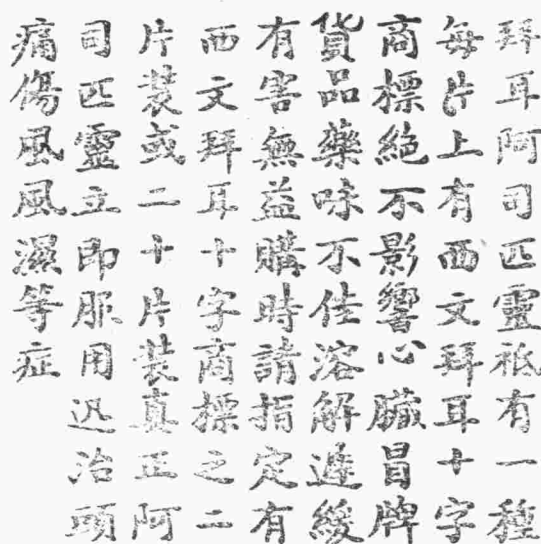 拜耳阿司匹靈祇有一種
每片上有西文拜耳十字
商標絕不影響心臟冒牌
貨品藥味不佳溶解遲緩
有害無益購時請指定有
西文拜耳十字商標之二
片裝或二十片裝真正阿
司匹靈立即服用迅治頭
痛傷風風濕等症